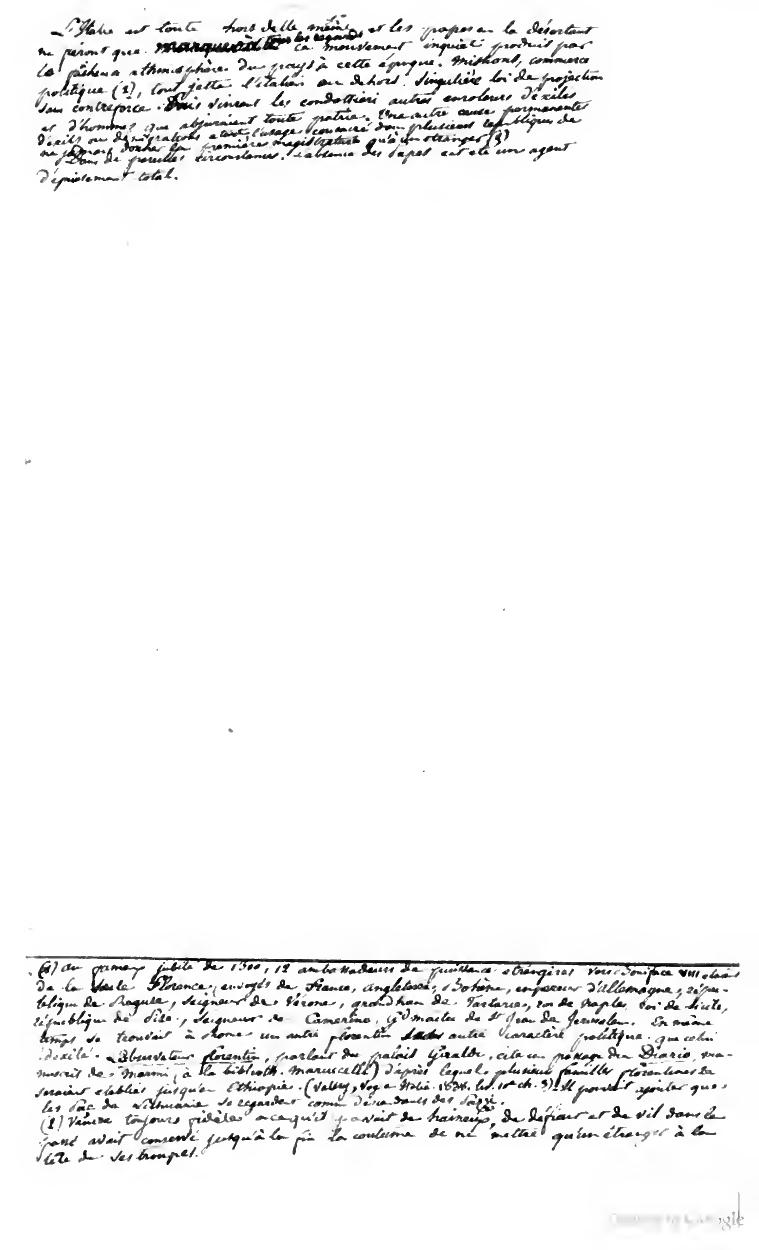 L'Italie est toute hors d'elle même et les papes en la désertant
ne feront que tous les regards ce mouvement inquiet produit par
la athmosphère du pays à cette époque. Missions, commerce
politique (1), tout jette l'italien au dehors. Singulière loi de projection
sans contreforce. Puis vinrent les condottieri autres enroleurs d'exilés
et d'hommes que abjuraient toute patrie. Une autre cause permanente
d'exils ou démigrations etait l'usage consacré dans plusieurs republiques de
ne jamais donner la première magistrature qu'à un étranger (2)
Dans de pareilles circonstances, l'absence des papes eut été un agent
d'épuisement total.
(1) Au fameux jubilé de 1300, 12 ambassadeurs de puissances étrangères vers Boniface VIII etaient
de la seule Florence; envoyés de France, Angleterre, Bohème, empereur d'Allemagne, répu-
blique de Raguse, seigneur de Vérone, grand han de Tartarie, roi de Naples, roi de Sicile,
république de Pise, seigneur de Camerino, Gd maitre de St Jean de Jerusalem. En même
temps se trouvait à Rome un autre florentin sans autre caractère politique que celui
d'exilé. L'observateur florentin, parlant du palais Giraldi, cite un passage du Diario, ma-
nuscrit de Marmi, à la biblioth. Marucelli) d'après lequel plusieurs familles florentines se
seraient etablies jusqu'en Ethiopie. (Valery, Voy. Italie 1838. liv. 10e ch. 3). Il pouvait ajouter que
les Pac de Lithuanie se regardent comme descendants des Pazzi.
(2) Venise toujours fidèle a ce qu'il y avait de haineux, de defiant et de vil dans le
passé avait conservé jusqu'à la fin la coutume de ne mettre qu'un étranger à la
tête de ses troupes.